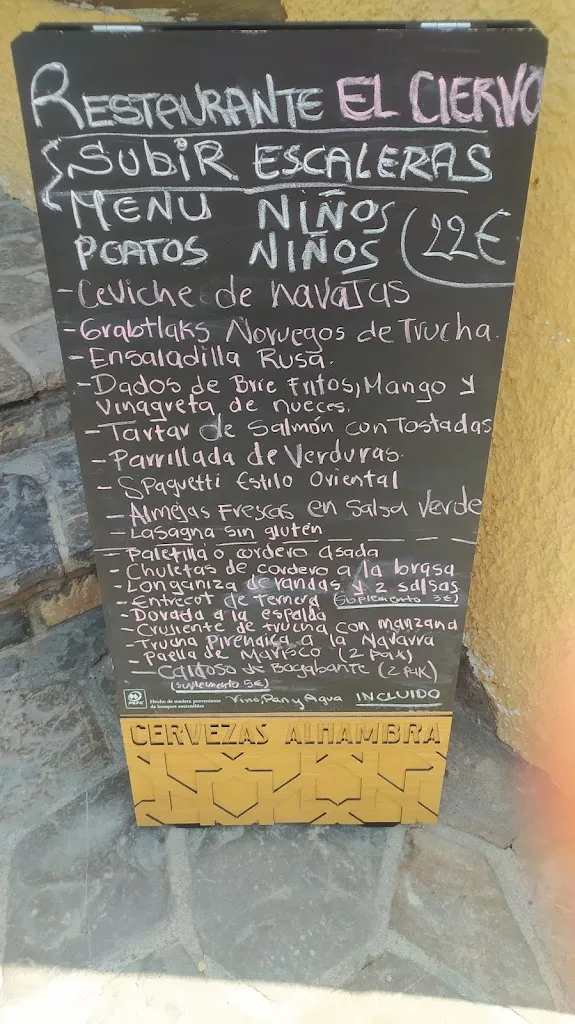 RESTAURANTE EL CIERVO
SUBIR ESCALERAS
MENU NIÑOS
PLATOS NIÑOS (22€
-Ceviche de navajas
-Grabtlaks Noruegos de Trucha.
-Ensaladilla Rusa.
-Dados de Brie Fritos, Mango y
Vinagreta de nueces.
-Tartar de Salmón con Tostadas
-Parrillada de Verduras.
-Spaguetti Estilo Oriental
-Almejas Frescas en Salsa Verde
-Lasagna sin gluten
-Paletilla o cordero asada
-Chuletas de cordero a la brasa
-Longaniza de randas y 2 salsas
-Entrecot de Ternera (suplemento 3€)
-Dorada a la espalda
-Crujiente de trucha con manzana
-Trucha Pirenaica a la Navarra
-Paella de Marisco (2 pax)
-Caldoso de Bogabante (2 pax)
(suplemento 5€)
PEFC
Hecho de madera proveniente
de bosques sostenibles
Vino, Pan y Agua INCLUIDO
CERVEZAS ALHAMBRA